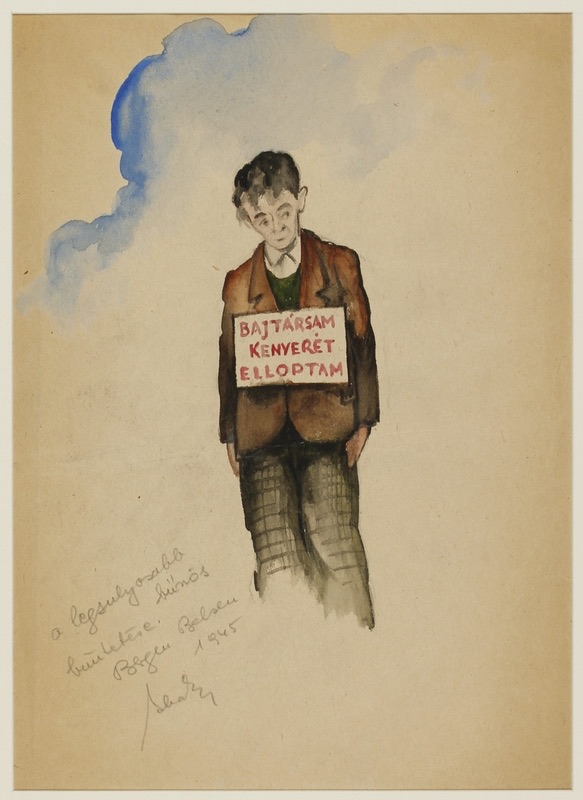 BAJTÁRSAM
KENYERÉT
ELLOPTAM
a legsulyosabb
bűnös
büntetése.
Bergen Belsen
1945